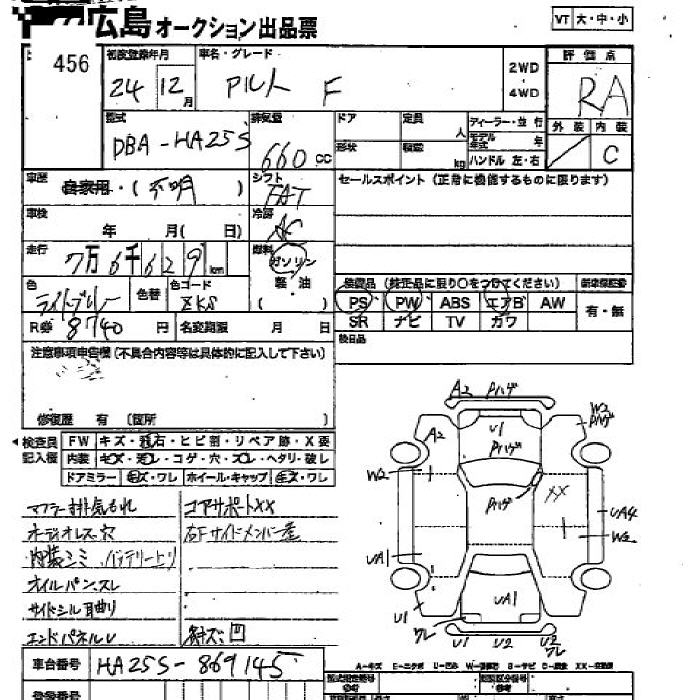 広島オークション出品票
VT 大・中・小
456
初度登録年月 車名・グレード 2WD 評価点
24 12月 アルト F 4WD RA
型式 排気量 ドア 定員 人 ディーラー・並行 外装 内装
DBA-HA25S 660cc 形状 積載 kg モデル年式 年 C
ハンドル 左・右
車歴 シフト セールスポイント(正常に機能するものに限ります)
自家用・(不明) FAT
車検 冷房
年 月( 日) AC
走行 燃料
7万6千629km ガソリン
色 色替 色コード 軽油 装備品(純正品に限り○をつけてください) 新車保証書
ライトブルー ZKS ( ) PS PW ABS エアB AW 有・無
R券 8740円 名変期限 月 日 SR ナビ TV カワ
注意事項申告欄(不具合内容等は具体的に記入して下さい) 後日品
修復歴 有(箇所 )
検査員記入欄 FW キズ・飛石・ヒビ割・リペア跡・X要
内装 キズ・汚レ・コゲ・穴・スレ・ヘタリ・破レ
ドアミラー キズ・ワレ ホイール・キャップ キズ・ワレ
マフラー排気もれ コアサポートXX
オーディオレス穴 右Fサイドメンバー歪
内装シミ バッテリー上り
オイルパン、スレ
サイドシル耳曲り
エンドパネルU 針キズ凹
車台番号 HA25S-869145
登録番号
A2 Pハゲ
A2 U1 Pハゲ W2 Pハゲ
W2 Pハゲ XX
UA4
UA1 W2
UA1
U1
ワレ U1 U2 U2 ワレ